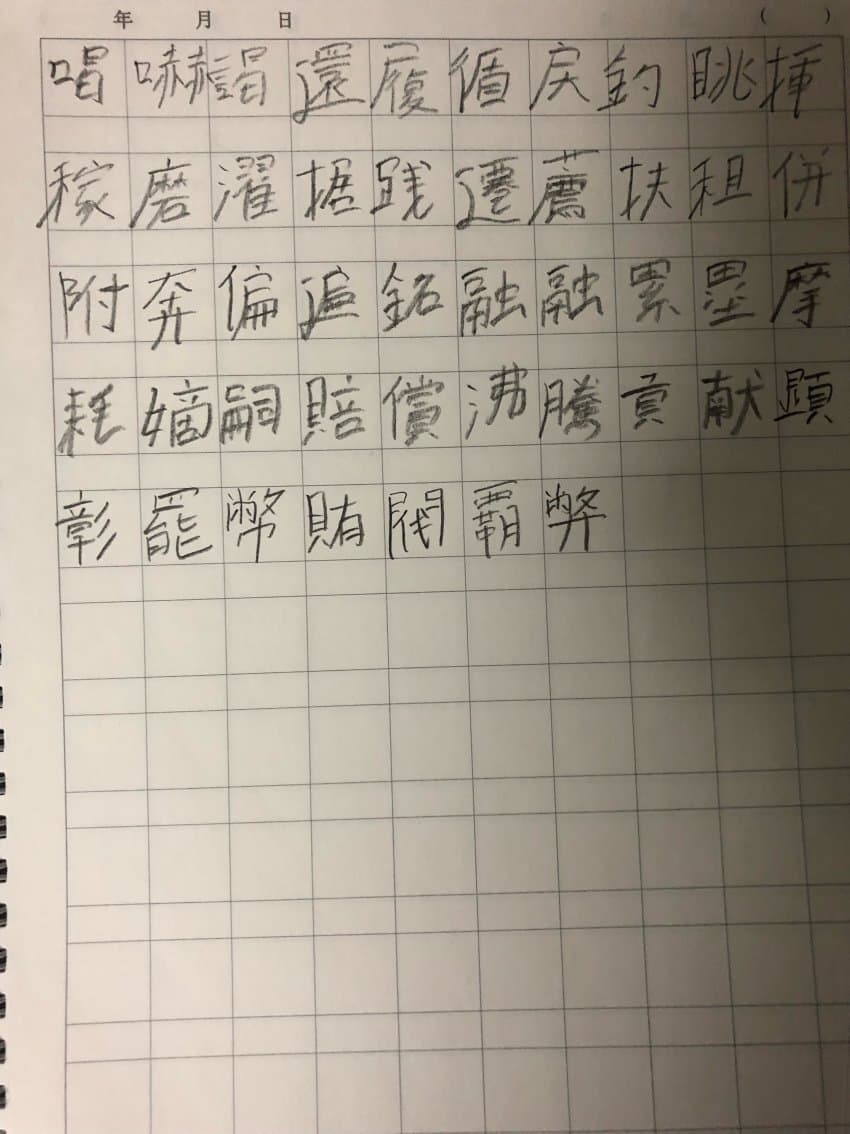 年 月 日 ( )
喝嚇謁還履循戻釣眺挿
稼磨濯据践遷薦扶租併
附奔偏遍銘融融累墨摩
耗嫡嗣賠償沸騰貢献顕
彰罷幣賄閥覇弊